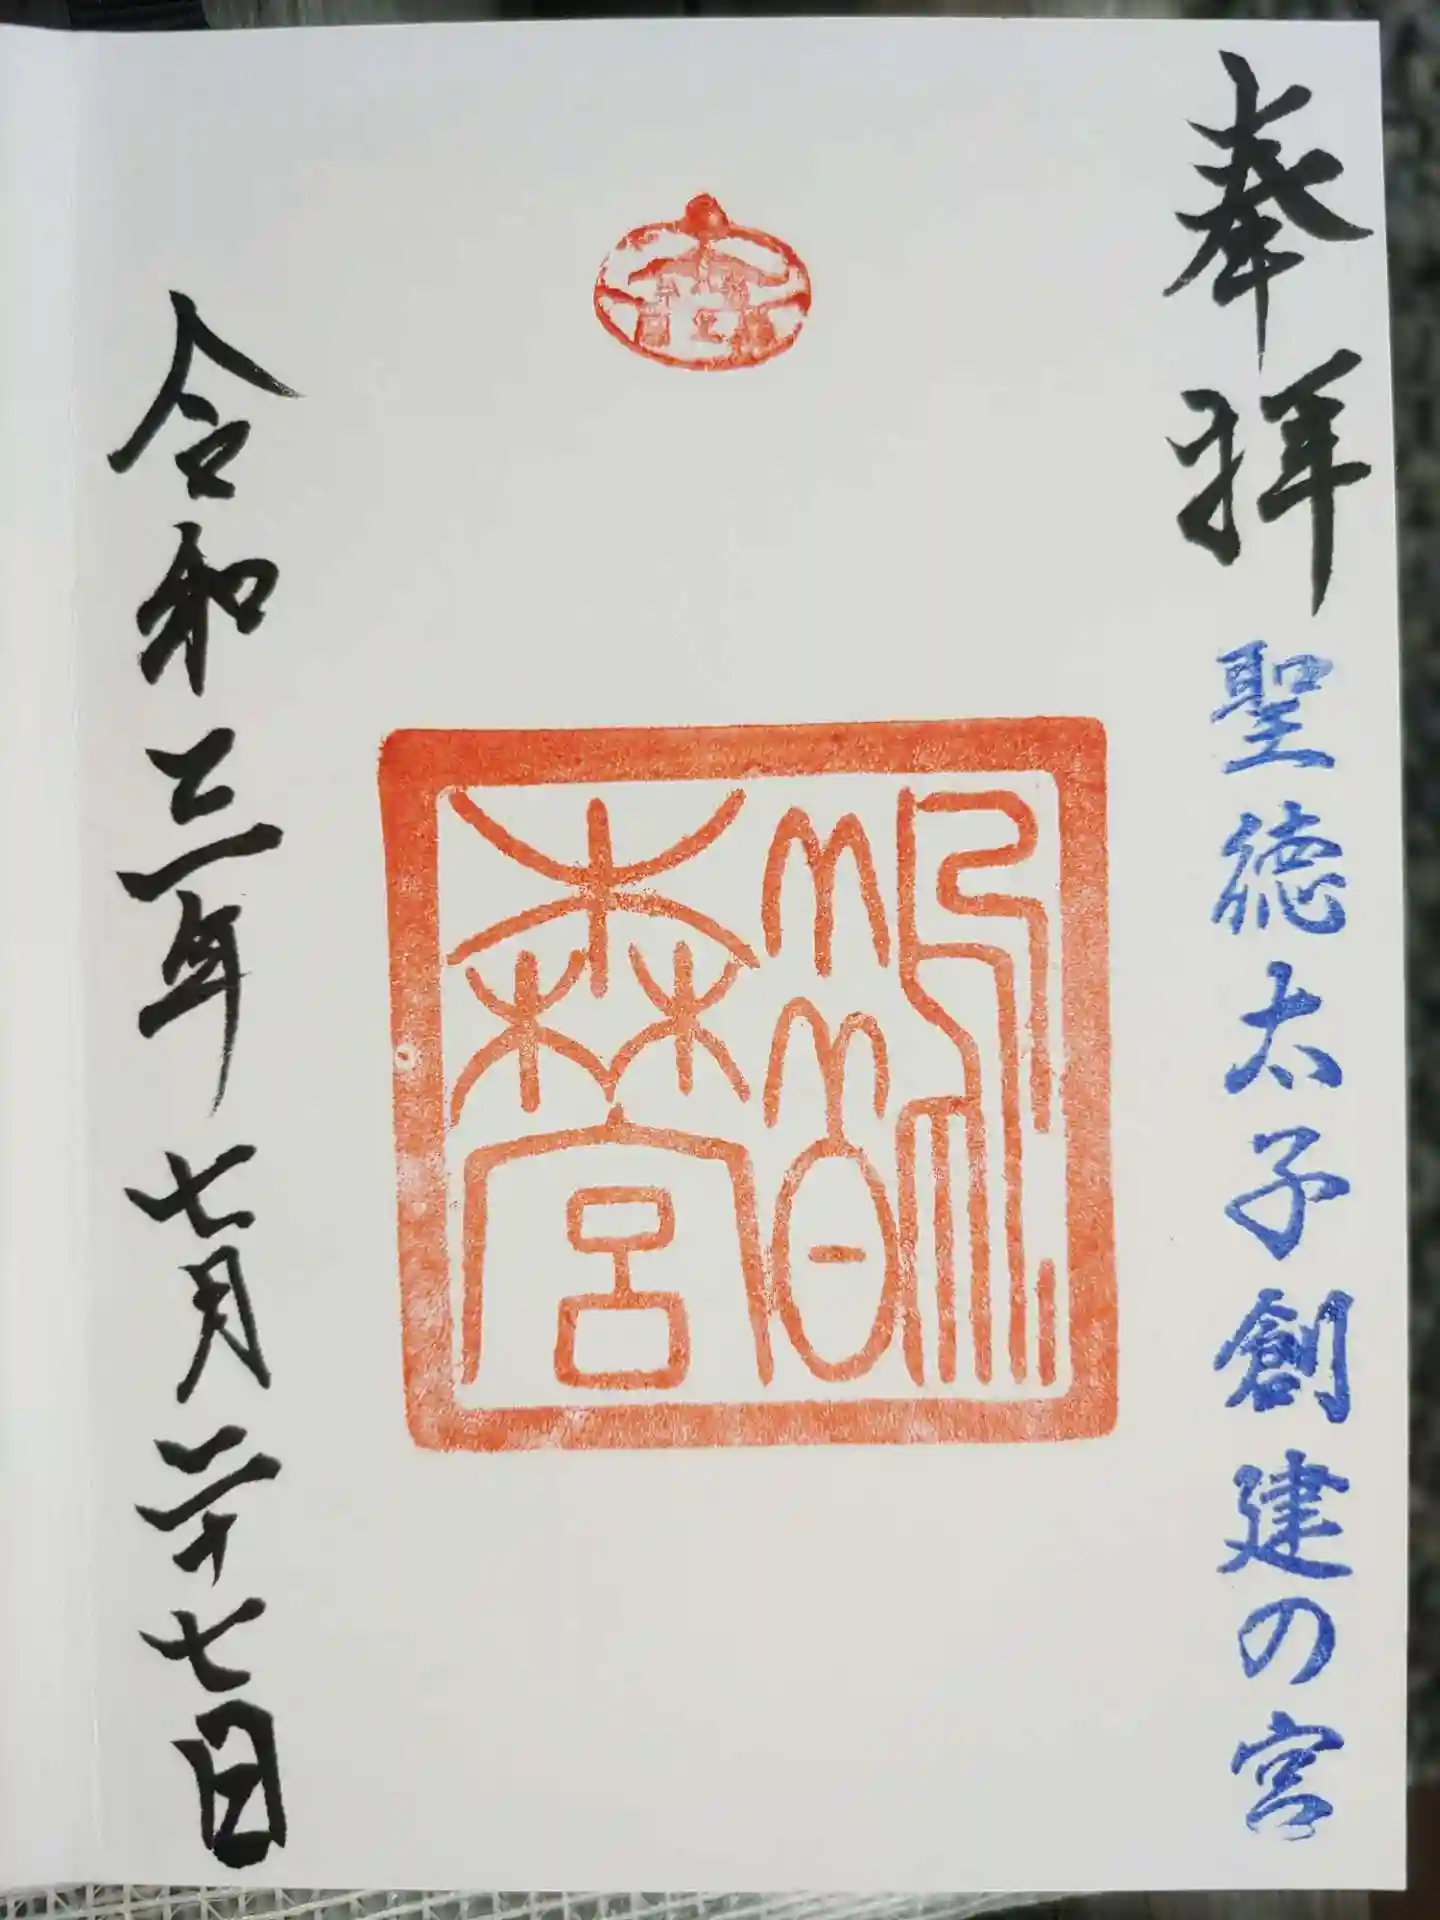 奉拝
聖徳太子創建の宮
鵲
森宮
令和三年七月二十七日